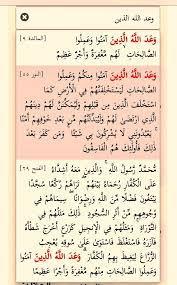 وعد الله الذين
وَعَدَ اللَّهُ الَّذِينَ آمَنُوا وَعَمِلُوا [المائدة ٩]
الصَّالِحَاتِ ۙ لَهُم مَّغْفِرَةٌ وَأَجْرٌ عَظِيمٌ
وَعَدَ اللَّهُ الَّذِينَ آمَنُوا مِنكُمْ وَعَمِلُوا [النور ٥٥]
الصَّالِحَاتِ لَيَسْتَخْلِفَنَّهُمْ فِي الْأَرْضِ كَمَا
اسْتَخْلَفَ الَّذِينَ مِن قَبْلِهِمْ وَلَيُمَكِّنَنَّ لَهُمْ دِينَهُمُ
الَّذِي ارْتَضَىٰ لَهُمْ وَلَيُبَدِّلَنَّهُم مِّن بَعْدِ خَوْفِهِمْ أَمْنًا
ۚ يَعْبُدُونَنِي لَا يُشْرِكُونَ بِي شَيْئًا ۚ وَمَن كَفَرَ بَعْدَ
ذَٰلِكَ فَأُولَٰئِكَ هُمُ الْفَاسِقُونَ
مُّحَمَّدٌ رَّسُولُ اللَّهِ ۚ وَالَّذِينَ مَعَهُ أَشِدَّاءُ [الفتح ٢٩]
عَلَى الْكُفَّارِ رُحَمَاءُ بَيْنَهُمْ ۖ تَرَاهُمْ رُكَّعًا سُجَّدًا
يَبْتَغُونَ فَضْلًا مِّنَ اللَّهِ وَرِضْوَانًا ۖ سِيمَاهُمْ فِي
وُجُوهِهِم مِّنْ أَثَرِ السُّجُودِ ۚ ذَٰلِكَ مَثَلُهُمْ فِي
التَّوْرَاةِ ۚ وَمَثَلُهُمْ فِي الْإِنجِيلِ كَزَرْعٍ أَخْرَجَ شَطْأَهُ
فَآزَرَهُ فَاسْتَغْلَظَ فَاسْتَوَىٰ عَلَىٰ سُوقِهِ يُعْجِبُ
الزُّرَّاعَ لِيَغِيظَ بِهِمُ الْكُفَّارَ ۗ وَعَدَ اللَّهُ الَّذِينَ
آمَنُوا وَعَمِلُوا الصَّالِحَاتِ مِنْهُم مَّغْفِرَةً وَأَجْرًا عَظِيمًا